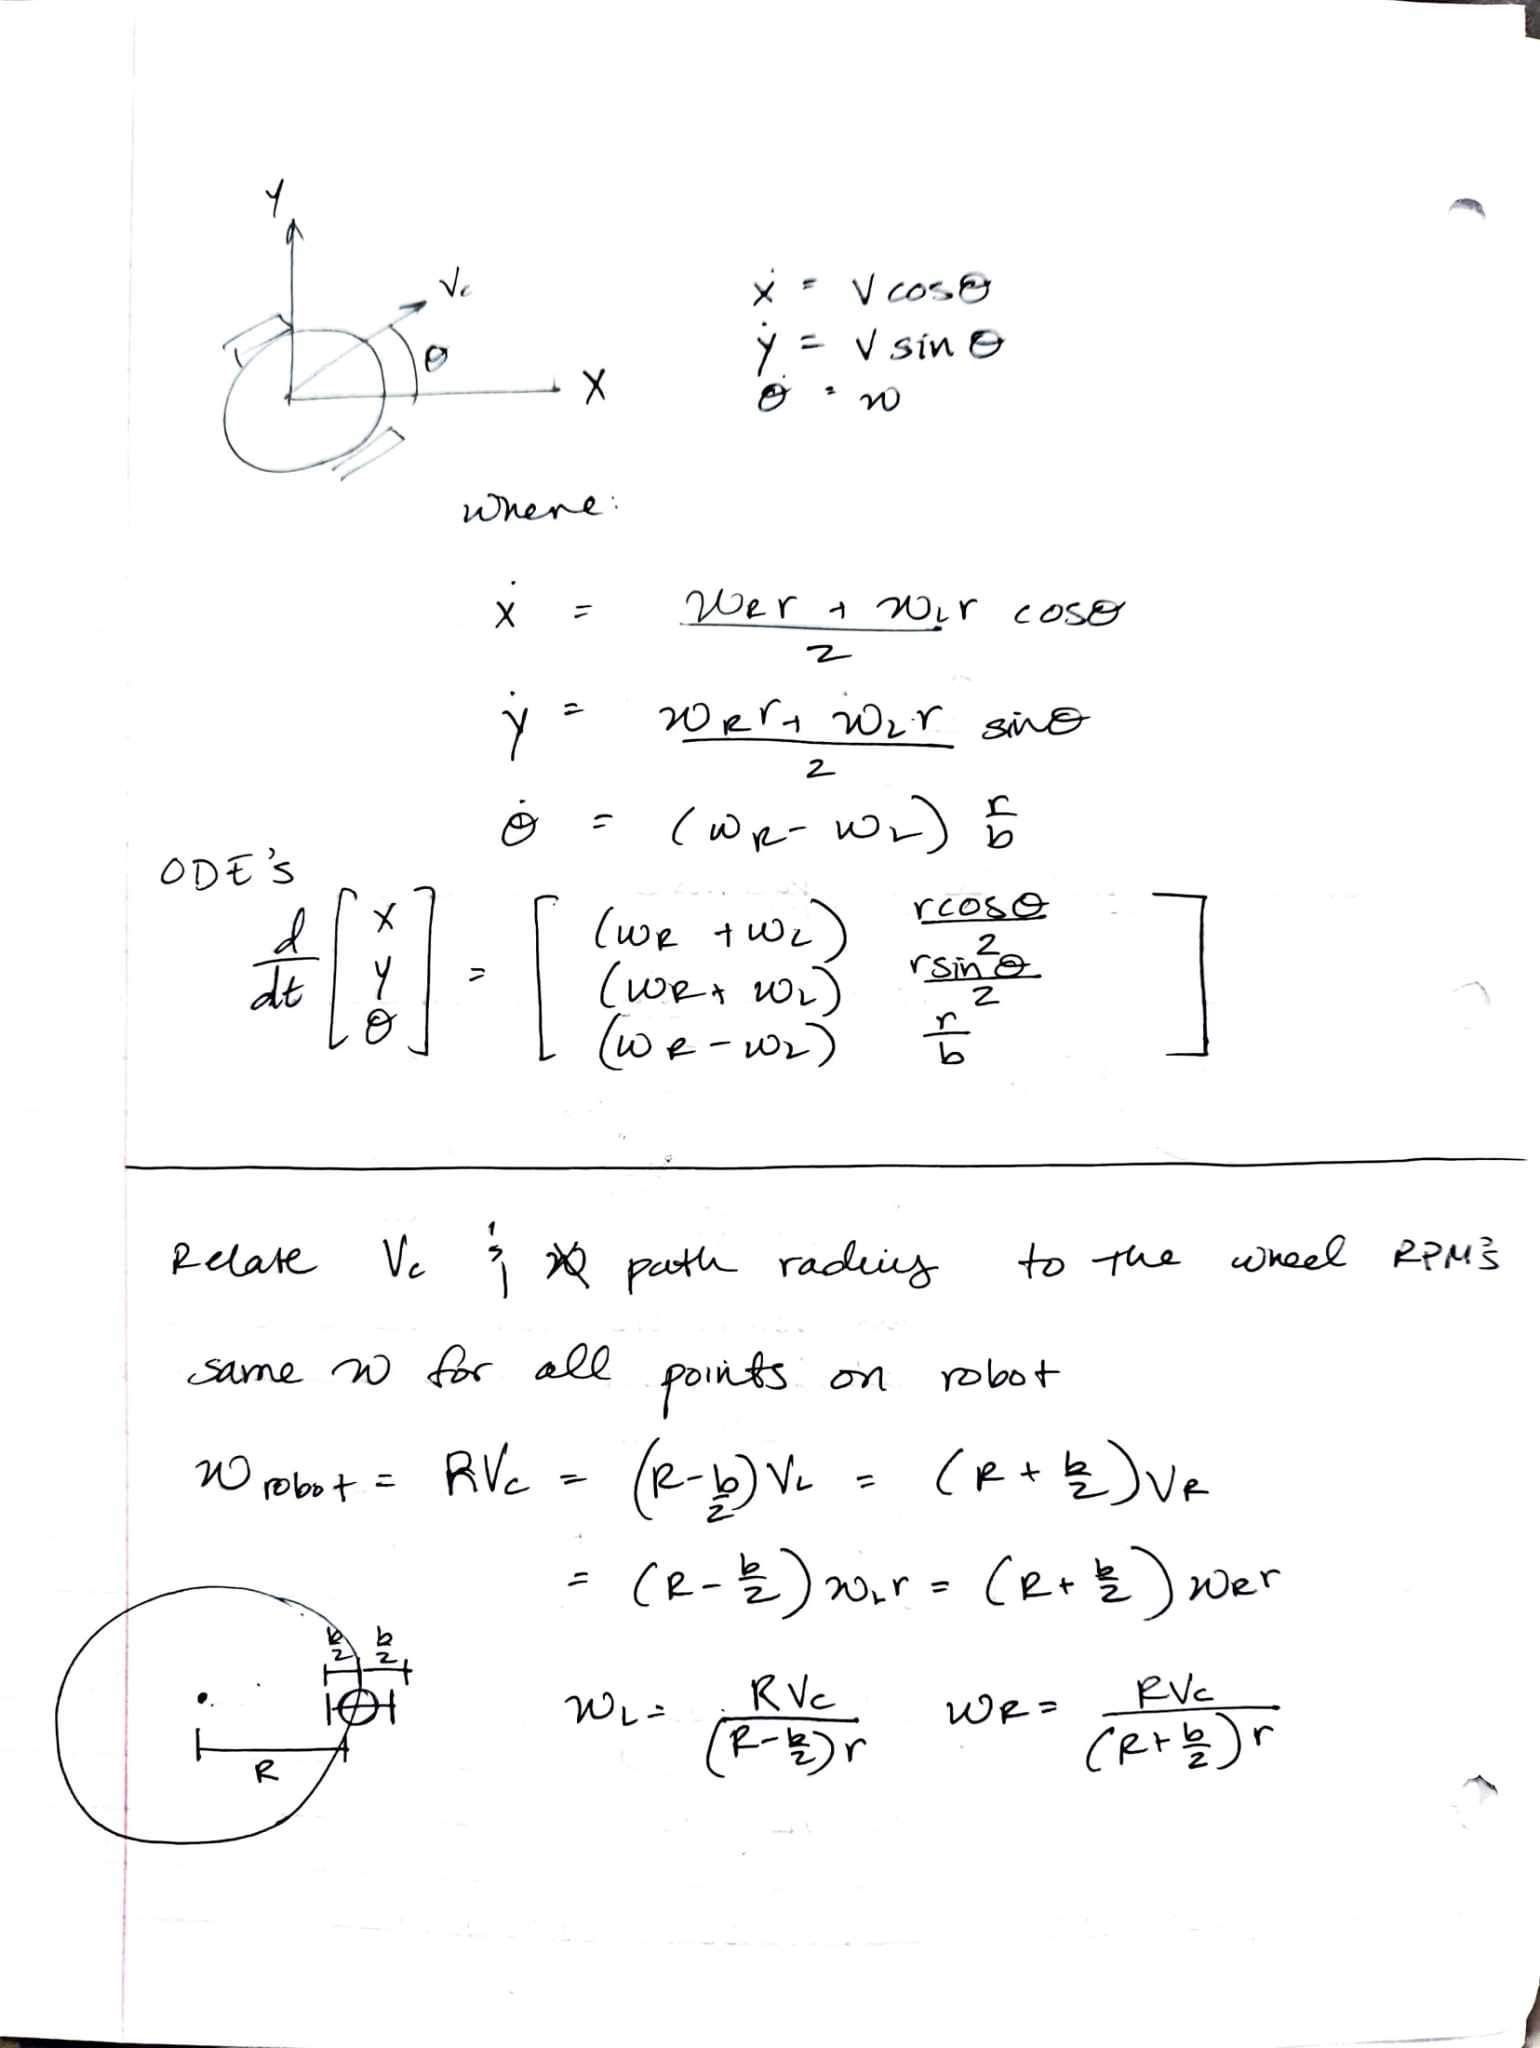 Y
Vc
θ
X
ẋ = V cosθ
ẏ = V sinθ
θ̇ = w
where:
ẋ = (wRr + wLr)/2 cosθ
ẏ = (wRr + wLr)/2 sinθ
θ̇ = (wR - wL) r/b
ODE's
d/dt [x y θ] = [
(wR + wL) rcosθ/2
(wR + wL) rsinθ/2
(wR - wL) r/b
]
Relate Vc & path radius to the wheel RPM's
same w for all points on robot
w robot = RVc = (R-b/2)VL = (R + b/2)VR
= (R - b/2)wLr = (R + b/2)wRr
b/2 b/2
R
wL = RVc/((R-b/2)r) wR = RVc/((R+b/2)r)